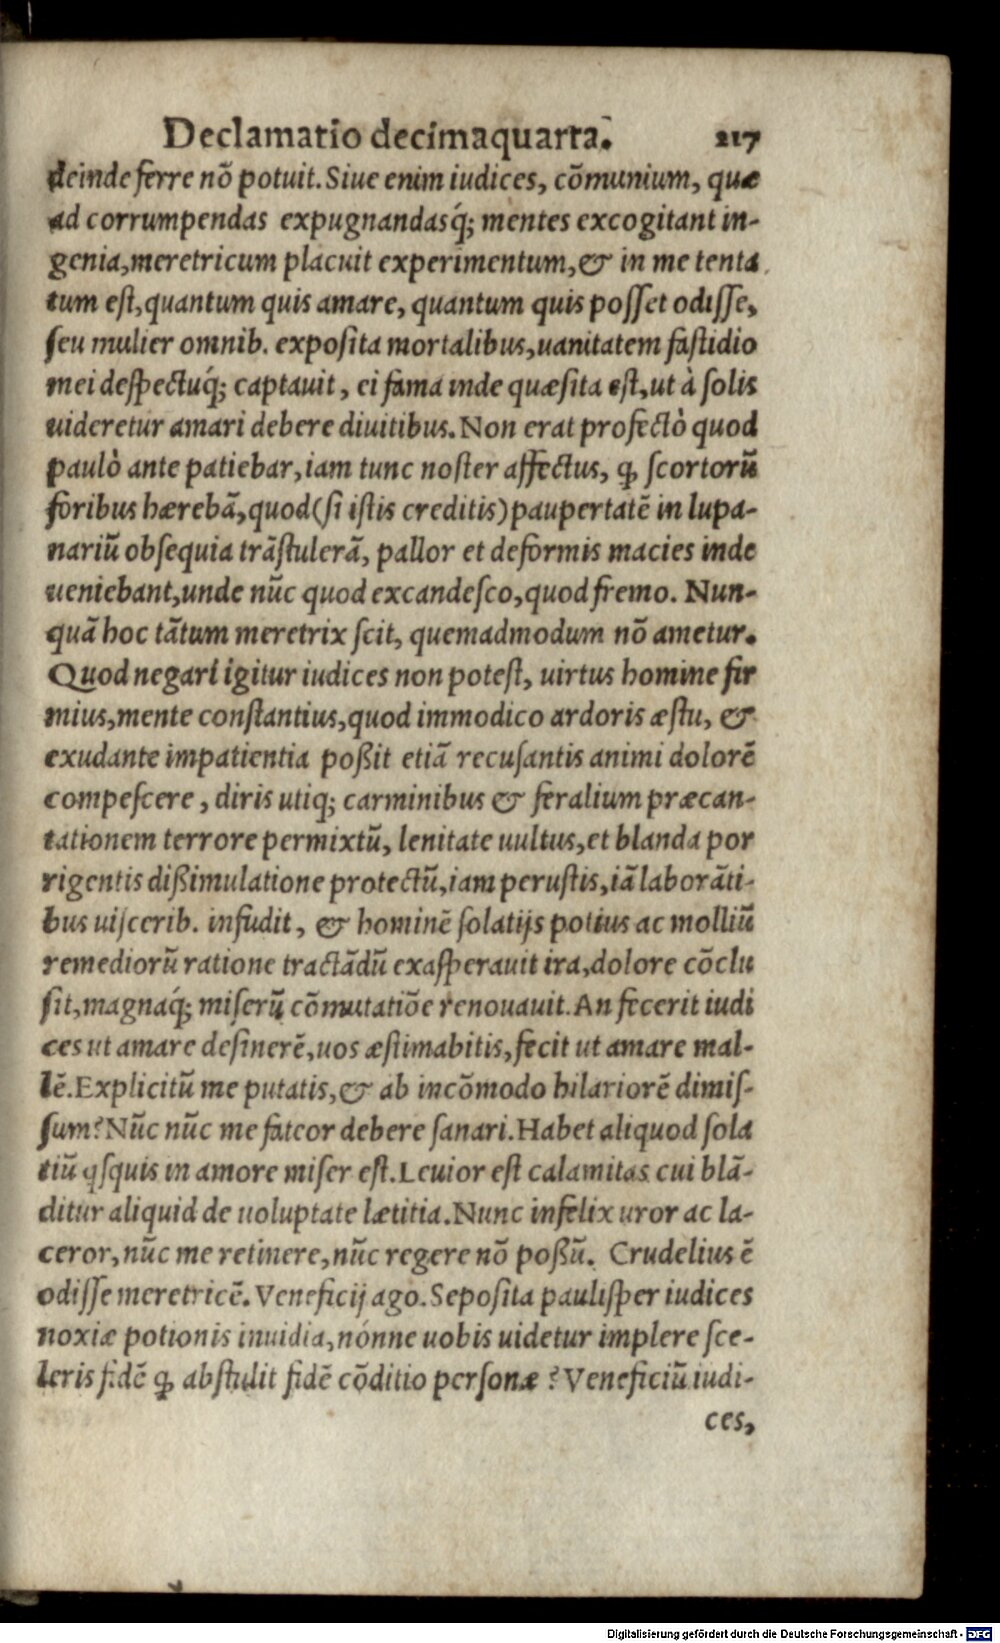 Declamatio decimaquarta. 217
deinde ferre nõ potuit. Siue enim iudices, cõmunium, quæ
ad corrumpendas expugnandasq́; mentes excogitant in-
genia, meretricum placuit experimentum, & in me tenta
tum eſt, quantum quis amare, quantum quis poſſet odiſſe,
ſeu mulier omnib. expoſita mortalibus, uanitatem faſtidio
mei deſpectuq́; captauit, ei fama inde quæſita eſt, ut à ſolis
uideretur amari debere diuitibus. Non erat profectò quod
paulò ante patiebar, iam tunc noſter affectus, ꝙ ſcortorũ
foribus hærebã, quod (ſi iſtis creditis) paupertatẽ in lupa-
nariũ obſequia trãſtulerã, pallor et deformis macies inde
ueniebant, unde nũc quod excandeſco, quod fremo. Nun-
quã hoc tãtum meretrix ſcit, quemadmodum nõ ametur.
Quod negari igitur iudices non poteſt, uirtus homine fir
mius, mente conſtantius, quod immodico ardoris æſtu, &
exudante impatientia poßit etiã recuſantis animi dolorẽ
compeſcere, diris utiq; carminibus & feralium præcan-
tationem terrore permixtũ, lenitate uultus, et blanda por
rigentis dißimulatione protectũ, iam peruſtis, iã laborãti-
bus uiſcerib. infudit, & hominẽ ſolatijs potius ac molliũ
remediorũ ratione tractãdũ exaſperauit ira, dolore cõclu
ſit, magnaq́; miſerũ cõmutatiõe renouauit. An fecerit iudi
ces ut amare deſinerẽ, uos æſtimabitis, fecit ut amare mal-
lẽ. Explicitũ me putatis, & ab incõmodo hilariorẽ dimiſ-
ſum? Nũc nũc me fateor debere ſanari. Habet aliquod ſola
tiũ qſquis in amore miſer eſt. Leuior eſt calamitas cui blã-
ditur aliquid de uoluptate lætitia. Nunc infelix uror ac la-
ceror, nũc me retinere, nũc regere nõ poßũ. Crudelius ẽ
odiſſe meretricẽ. Veneficij ago. Sepoſita pauliſper iudices
noxiæ potionis inuidia, nónne uobis uidetur implere ſce-
leris fidẽ ꝙ abſtulit fidẽ cõditio perſonæ? Veneficiũ iudi-
ces,
Digitalisierung gefördert durch die Deutsche Forschungsgemeinschaft - DFG